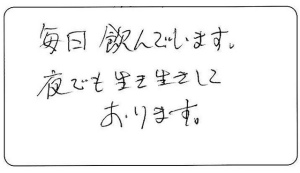 毎日飲んでいます。
夜でも生き生きして
おります。